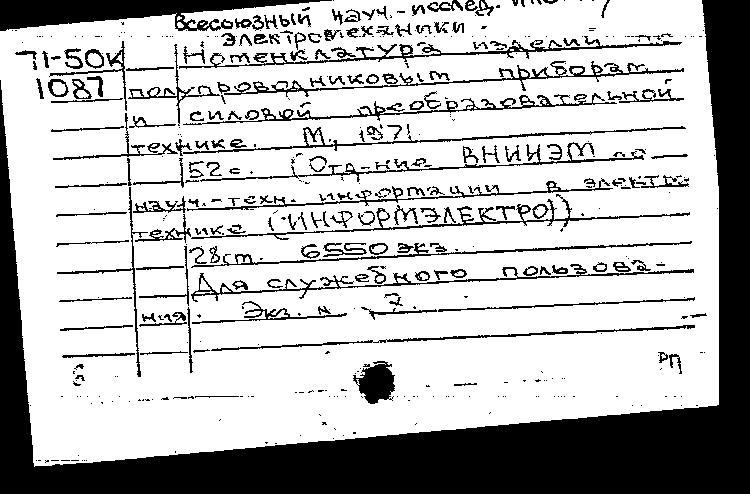 Всесоюзный науч.-исслед.
электромеханики.
71-50К Номенклатура изделий по
1087 полупроводниковым приборам
и силовой преобразовательной
технике. М., 1971.
52 с. (Отд-ние ВНИИЭМ по
науч.-техн. информации в электро-
технике ("ИНФОРМЭЛЕКТРО)).
28см. 6550 экз.
Для служебного пользова-
ния. Экз. N 7.
6 РП